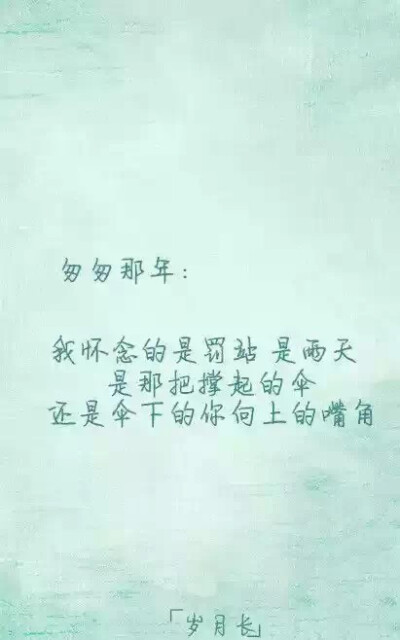 匆匆那年：
我怀念的是罚站 是雨天
是那把撑起的伞
还是伞下的你向上的嘴角
「岁月长」